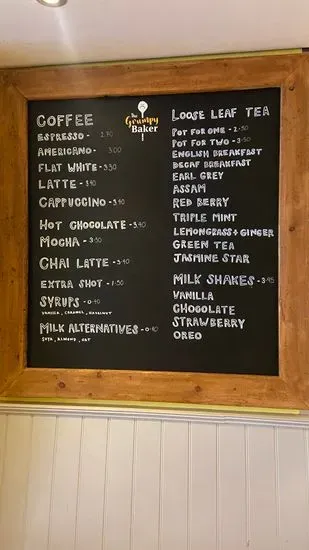 The Grumpy Baker
COFFEE
ESPRESSO - 2.70
AMERICANO - 3.00
FLAT WHITE - 3.30
LATTE - 3.40
CAPPUCCINO - 3.40
HOT CHOCOLATE - 3.40
MOCHA - 3.50
CHAI LATTE - 3.40
EXTRA SHOT - 1.50
SYRUPS - 0.40
VANILLA, CARAMEL, HAZELNUT
MILK ALTERNATIVES - 0.40
SOYA, ALMOND, OAT
LOOSE LEAF TEA
POT FOR ONE - 2.50
POT FOR TWO - 3.50
ENGLISH BREAKFAST
DECAF BREAKFAST
EARL GREY
ASSAM
RED BERRY
TRIPLE MINT
LEMONGRASS + GINGER
GREEN TEA
JASMINE STAR
MILK SHAKES - 3.95
VANILLA
CHOCOLATE
STRAWBERRY
OREO